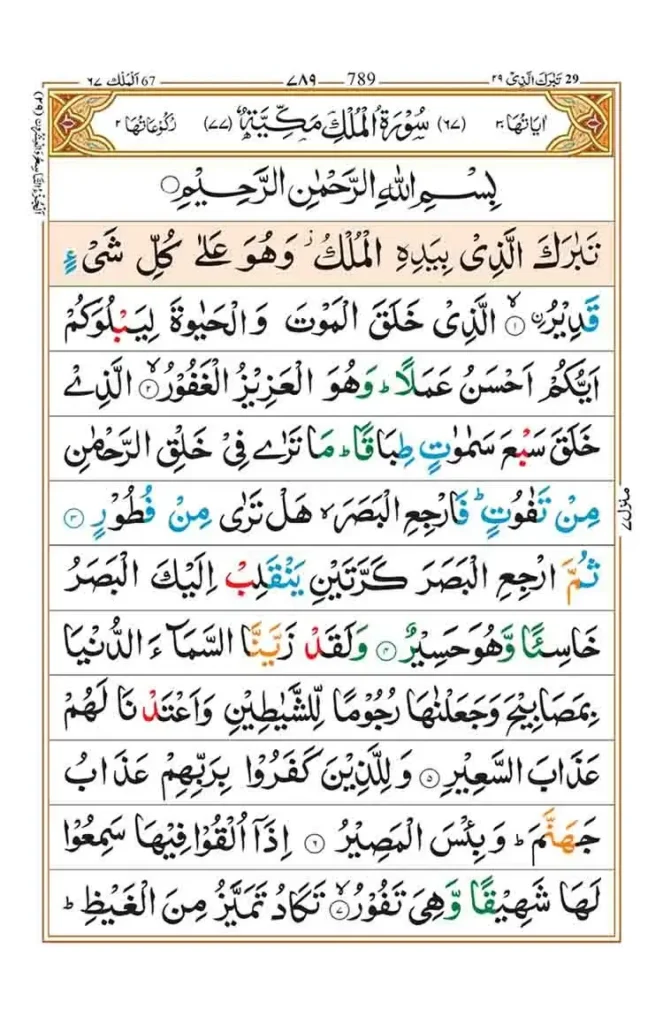 29 تَبٰرَكَ الَّذِیْ ٢٩
789 ٧٨٩
67 اَلْمُلْك ٦٧
اٰیَاتُهَا ٣٠ (٦٧) سُوْرَةُ الْمُلْكِ مَكِّیَّةٌ (٧٧) رُكُوْعَاتُهَا ٢
بِسْمِ اللّٰهِ الرَّحْمٰنِ الرَّحِیْمِ
تَبٰرَكَ الَّذِیْ بِیَدِهِ الْمُلْكُ ز وَهُوَ عَلٰی كُلِّ شَیْءٍ
قَدِیْرُ ۨ ۙ﴿١﴾ الَّذِیْ خَلَقَ الْمَوْتَ وَالْحَیٰوةَ لِیَبْلُوَكُمْ
اَیُّكُمْ اَحْسَنُ عَمَلًا ؕ وَهُوَ الْعَزِیْزُ الْغَفُوْرُ ۙ﴿٢﴾ الَّذِیْ
خَلَقَ سَبْعَ سَمٰوٰتٍ طِبَاقًا ؕ مَا تَرٰی فِیْ خَلْقِ الرَّحْمٰنِ
مِنْ تَفٰوُتٍ ؕ فَارْجِعِ الْبَصَرَ ۙ هَلْ تَرٰی مِنْ فُطُوْرٍ ﴿٣﴾
ثُمَّ ارْجِعِ الْبَصَرَ كَرَّتَیْنِ یَنْقَلِبْ اِلَیْكَ الْبَصَرُ
خَاسِئًا وَّهُوَ حَسِیْرٌ ﴿٤﴾ وَلَقَدْ زَیَّنَّا السَّمَآءَ الدُّنْیَا
بِمَصَابِیْحَ وَجَعَلْنٰهَا رُجُوْمًا لِّلشَّیٰطِیْنِ وَاَعْتَدْنَا لَهُمْ
عَذَابَ السَّعِیْرِ ﴿٥﴾ وَلِلَّذِیْنَ كَفَرُوْا بِرَبِّهِمْ عَذَابُ
جَهَنَّمَ ؕ وَبِئْسَ الْمَصِیْرُ ﴿٦﴾ اِذَاۤ اُلْقُوْا فِیْهَا سَمِعُوْا
لَهَا شَهِیْقًا وَّهِیَ تَفُوْرُ ۙ﴿٧﴾ تَكَادُ تَمَیَّزُ مِنَ الْغَیْظِ ؕ
منزل ٧